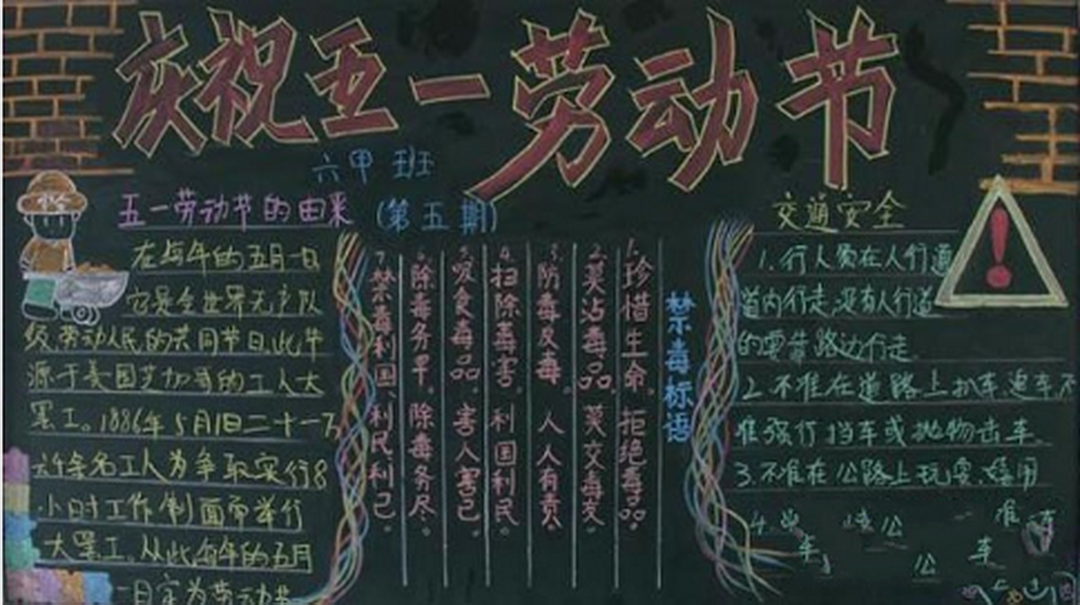 庆祝五一劳动节
六甲班
(第五期)
五一劳动节的由来
在每年的五月一日
它是全世界无产队
级劳动人民的共同节日,此节
源于美国芝加哥的工人大
罢工。1886年5月1日二十一万
余名工人为争取实行8
小时工作制而举行
大罢工。从此每年的五月
一日定为劳动节
禁毒标语
1.珍惜生命。拒绝毒品。
2.莫沾毒品。莫交毒友。
3.防毒反毒。人人有责。
4.扫除毒害。利国利民
5.吸食毒品。害人害己。
6.除毒务早。除毒务尽。
7.禁毒利国。利民利己。
交通安全
1.行人须在人行道
道内行走,没有人行道
的要靠路边行走.
2.不准在道路上扒车.追车不
准强行拦车或抛物击车.
3.不准在公路上玩耍.嬉闹
4.
公
准
车
车
公